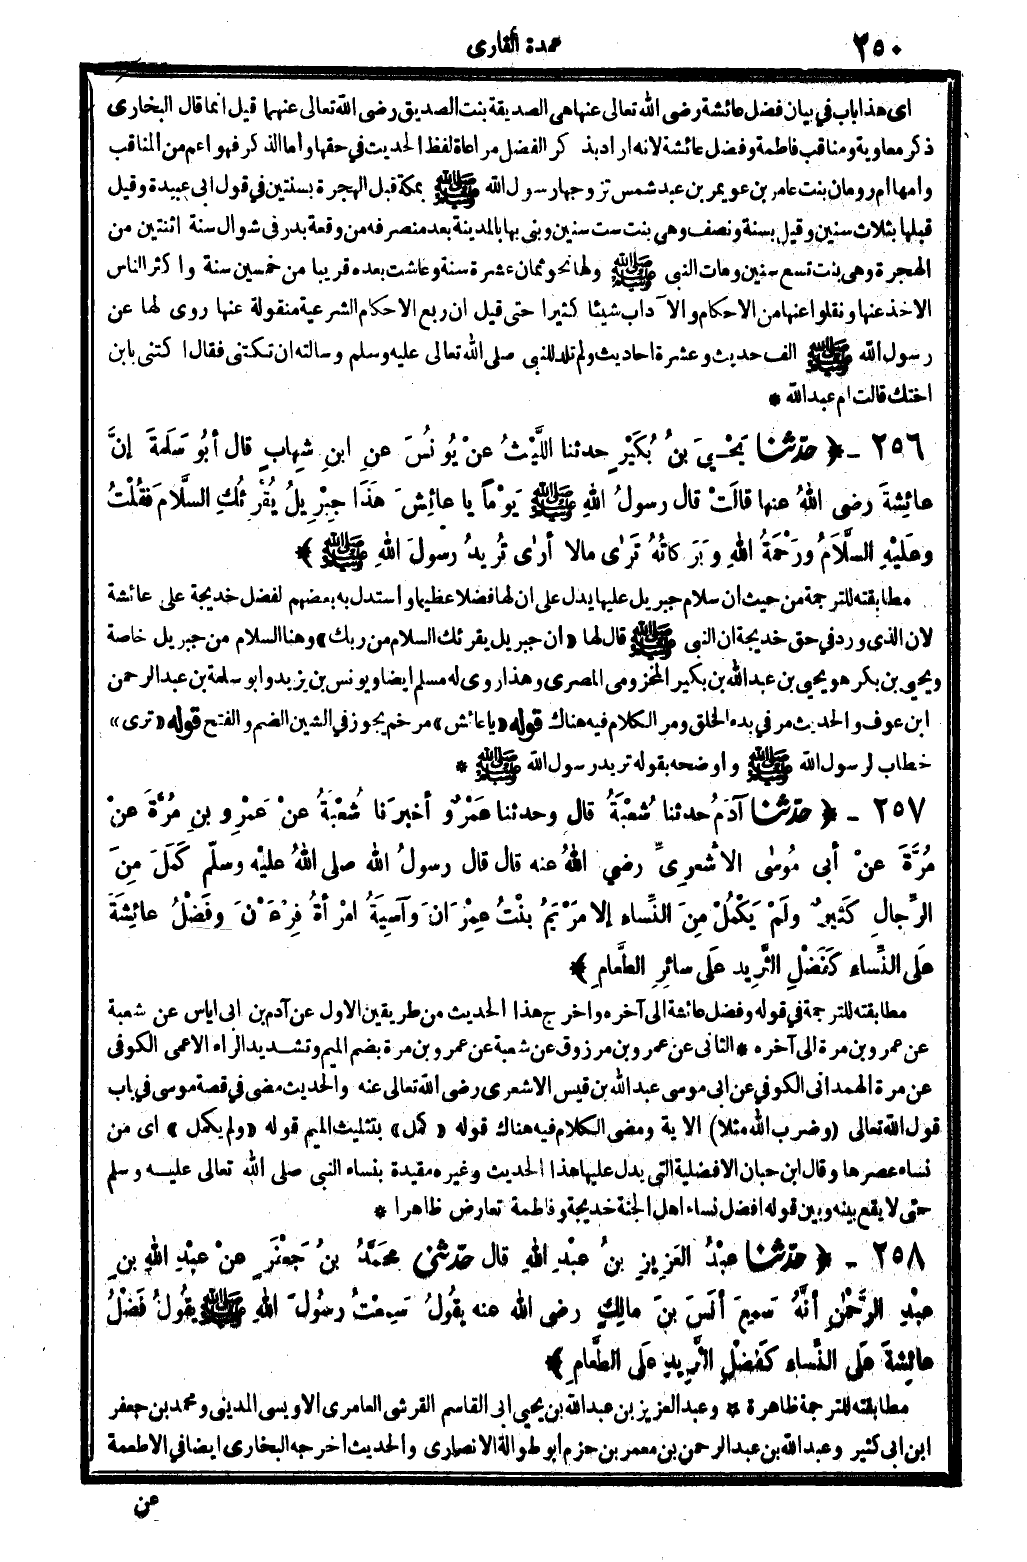 ٢٥٠
عمدة القارى
اى هذا باب في بيان فضل عائشة رضى الله تعالى عنها هى الصديقة بنت الصديق رضى الله تعالى عنهما قيل انما قال البخارى
ذكر معاوية ومناقب فاطمة وفضل عائشة لانه اراد بذكر الفضل مراعاة لفظ الحديث في حقها وأما الذكر فهو اعم من المناقب
وأمها أم رومان بنت عامر بن عويمر بن عبد شمس تزوجها رسول الله ﷺ بمكة قبل الهجرة بسنتين في قول ابى عبيدة وقيل
قبلها بثلاث سنين وقيل بسنة ونصف وهى بنت ست سنين وبنى بها بالمدينة بعد منصرفه من وقعة بدر في شوال سنة اثنتين من
الهجرة وهى بنت تسع سنين ومات النبى ﷺ ولها نحو ثمان عشرة سنة وعاشت بعده قريبا من خمسين سنة واكثر الناس
الاخذ عنها ونقلوا عنها من الاحكام والآداب شيئا كثيرا حتى قيل ان ربع الاحكام الشرعية منقولة عنها روى لها عن
رسول الله ﷺ الف حديث وعشرة احاديث ولم تلد للنبى صلى الله تعالى عليه وسلم وسالته ان تكتنى فقال اكتنى بابن
اختك قالت ام عبد الله *
٢٥٦ - ﴿ حدثنا يَحْيَى بنُ بُكَيْرٍ حدثنا اللَّيْثُ عنْ يُونُسَ عنِ ابنِ شِهابٍ قال أبُو سَلَمَةَ إنَّ
عائِشَةَ رضى اللهُ عنها قالَتْ قال رسولُ اللهِ ﷺ يَوْماً يا عائِشَ هَذَا جِبْرِيلُ يُقْرِئُكِ السَّلَامَ فقُلْتُ
وعَلَيْهِ السَّلَامُ ورَحْمَةُ اللهِ وبَرَكاتُهُ تَرَى مالا أرَى تُرِيدُ رسولَ اللهِ ﷺ ﴾
مطابقته للترجمة من حيث ان سلام جبريل عليها يدل على ان لها فضلا عظيما واستدل به بعضهم لفضل خديجة على عائشة
لان الذى ورد في حق خديجة ان النبى ﷺ قال لها « ان جبريل يقرئك السلام من ربك » وهنا السلام من جبريل خاصة
ويحيى بن بكر هو يحيى بن عبد الله بن بكير المخزومى المصرى وهذا روى له مسلم ايضا ويونس بن يزيد وابو سلمة بن عبد الرحمن
ابن عوف والحديث مر في بدء الخلق ومر الكلام فيه هناك قوله « يا عائش » مرخم يجوز في الشين الضم والفتح قوله « ترى »
خطاب لرسول الله ﷺ واوضحه بقوله تريد رسول الله ﷺ *
٢٥٧ - ﴿ حدثنا آدَمُ حدثنا شُعْبَةُ قال وحدثنا عَمْرٌو أخبرَنا شُعْبَةُ عنْ عَمْرِو بنِ مُرَّةَ عنْ
مُرَّةَ عنْ أبى مُوسَى الاشْعرِىِّ رضي اللهُ عنه قال قال رسولُ الله صلى اللهُ عليْه وسلَّم كَمَلَ مِنَ
الرِّجالِ كَثِيرٌ ولَمْ يَكْمُلْ مِنَ النِّساءِ إلا مَرْيَمُ بنْتُ عِمْرَانَ وآسِيَةُ امْرَأةُ فِرْعَوْنَ وفَضْلُ عائِشَةَ
علَى النِّساءِ كَفَضْلِ الثَّرِيدِ علَى سائِرِ الطَّعامِ ﴾
مطابقته للترجمة في قوله وفضل عائشة الى آخره واخرج هذا الحديث من طريقين الاول عن آدم بن ابى اياس عن شعبة
عن عمرو بن مرة الى آخره * الثانى عن عمرو بن مرزوق عن شعبة عن عمرو بن مرة بضم الميم وتشديد الراء الاعمى الكوفى
عن مرة الهمدانى الكوفي عن ابى موسى عبد الله بن قيس الاشعرى رضى الله تعالى عنه والحديث مضى في قصة موسى في باب
قول الله تعالى (وضرب الله مثلا) الاية ومضى الكلام فيه هناك قوله « كمل » بتثليث الميم قوله « ولم يكمل » اى من
نساء عصرها وقال ابن حبان الافضلية التى يدل عليها هذا الحديث وغيره مقيدة بنساء النبى صلى الله تعالى عليه وسلم
حتى لا يقع بينه وبين قوله افضل نساء اهل الجنة خديجة وفاطمة تعارض ظاهرا *
٢٥٨ - ﴿ حدثنا عبْدُ العَزِيزِ بنُ عبْدِ اللهِ قال حدثنى مُحَمَّدُ بنُ جَعْفَرٍ عنْ عبْدِ اللهِ بنِ
عبْدِ الرَّحْمَنِ أنَّهُ سَمِعَ أنَسَ بنَ مالِكٍ رضى الله عنه يقُولُ سَمِعْتُ رسُولَ اللهِ ﷺ يقُولُ فَضْلُ
عائِشةَ علَى النِّساءِ كَفَضْلِ الثَّرِيدِ علَى الطَّعامِ ﴾
مطابقته للترجمة ظاهرة * وعبد العزيز بن عبد الله بن يحيى ابى القاسم القرشى العامرى الاويسى المدينى ومحمد بن جعفر
ابن ابى كثير وعبد الله بن عبد الرحمن بن معمر بن حزم أبو طوالة الانصارى والحديث أخرجه البخارى ايضا في الاطعمة
عن